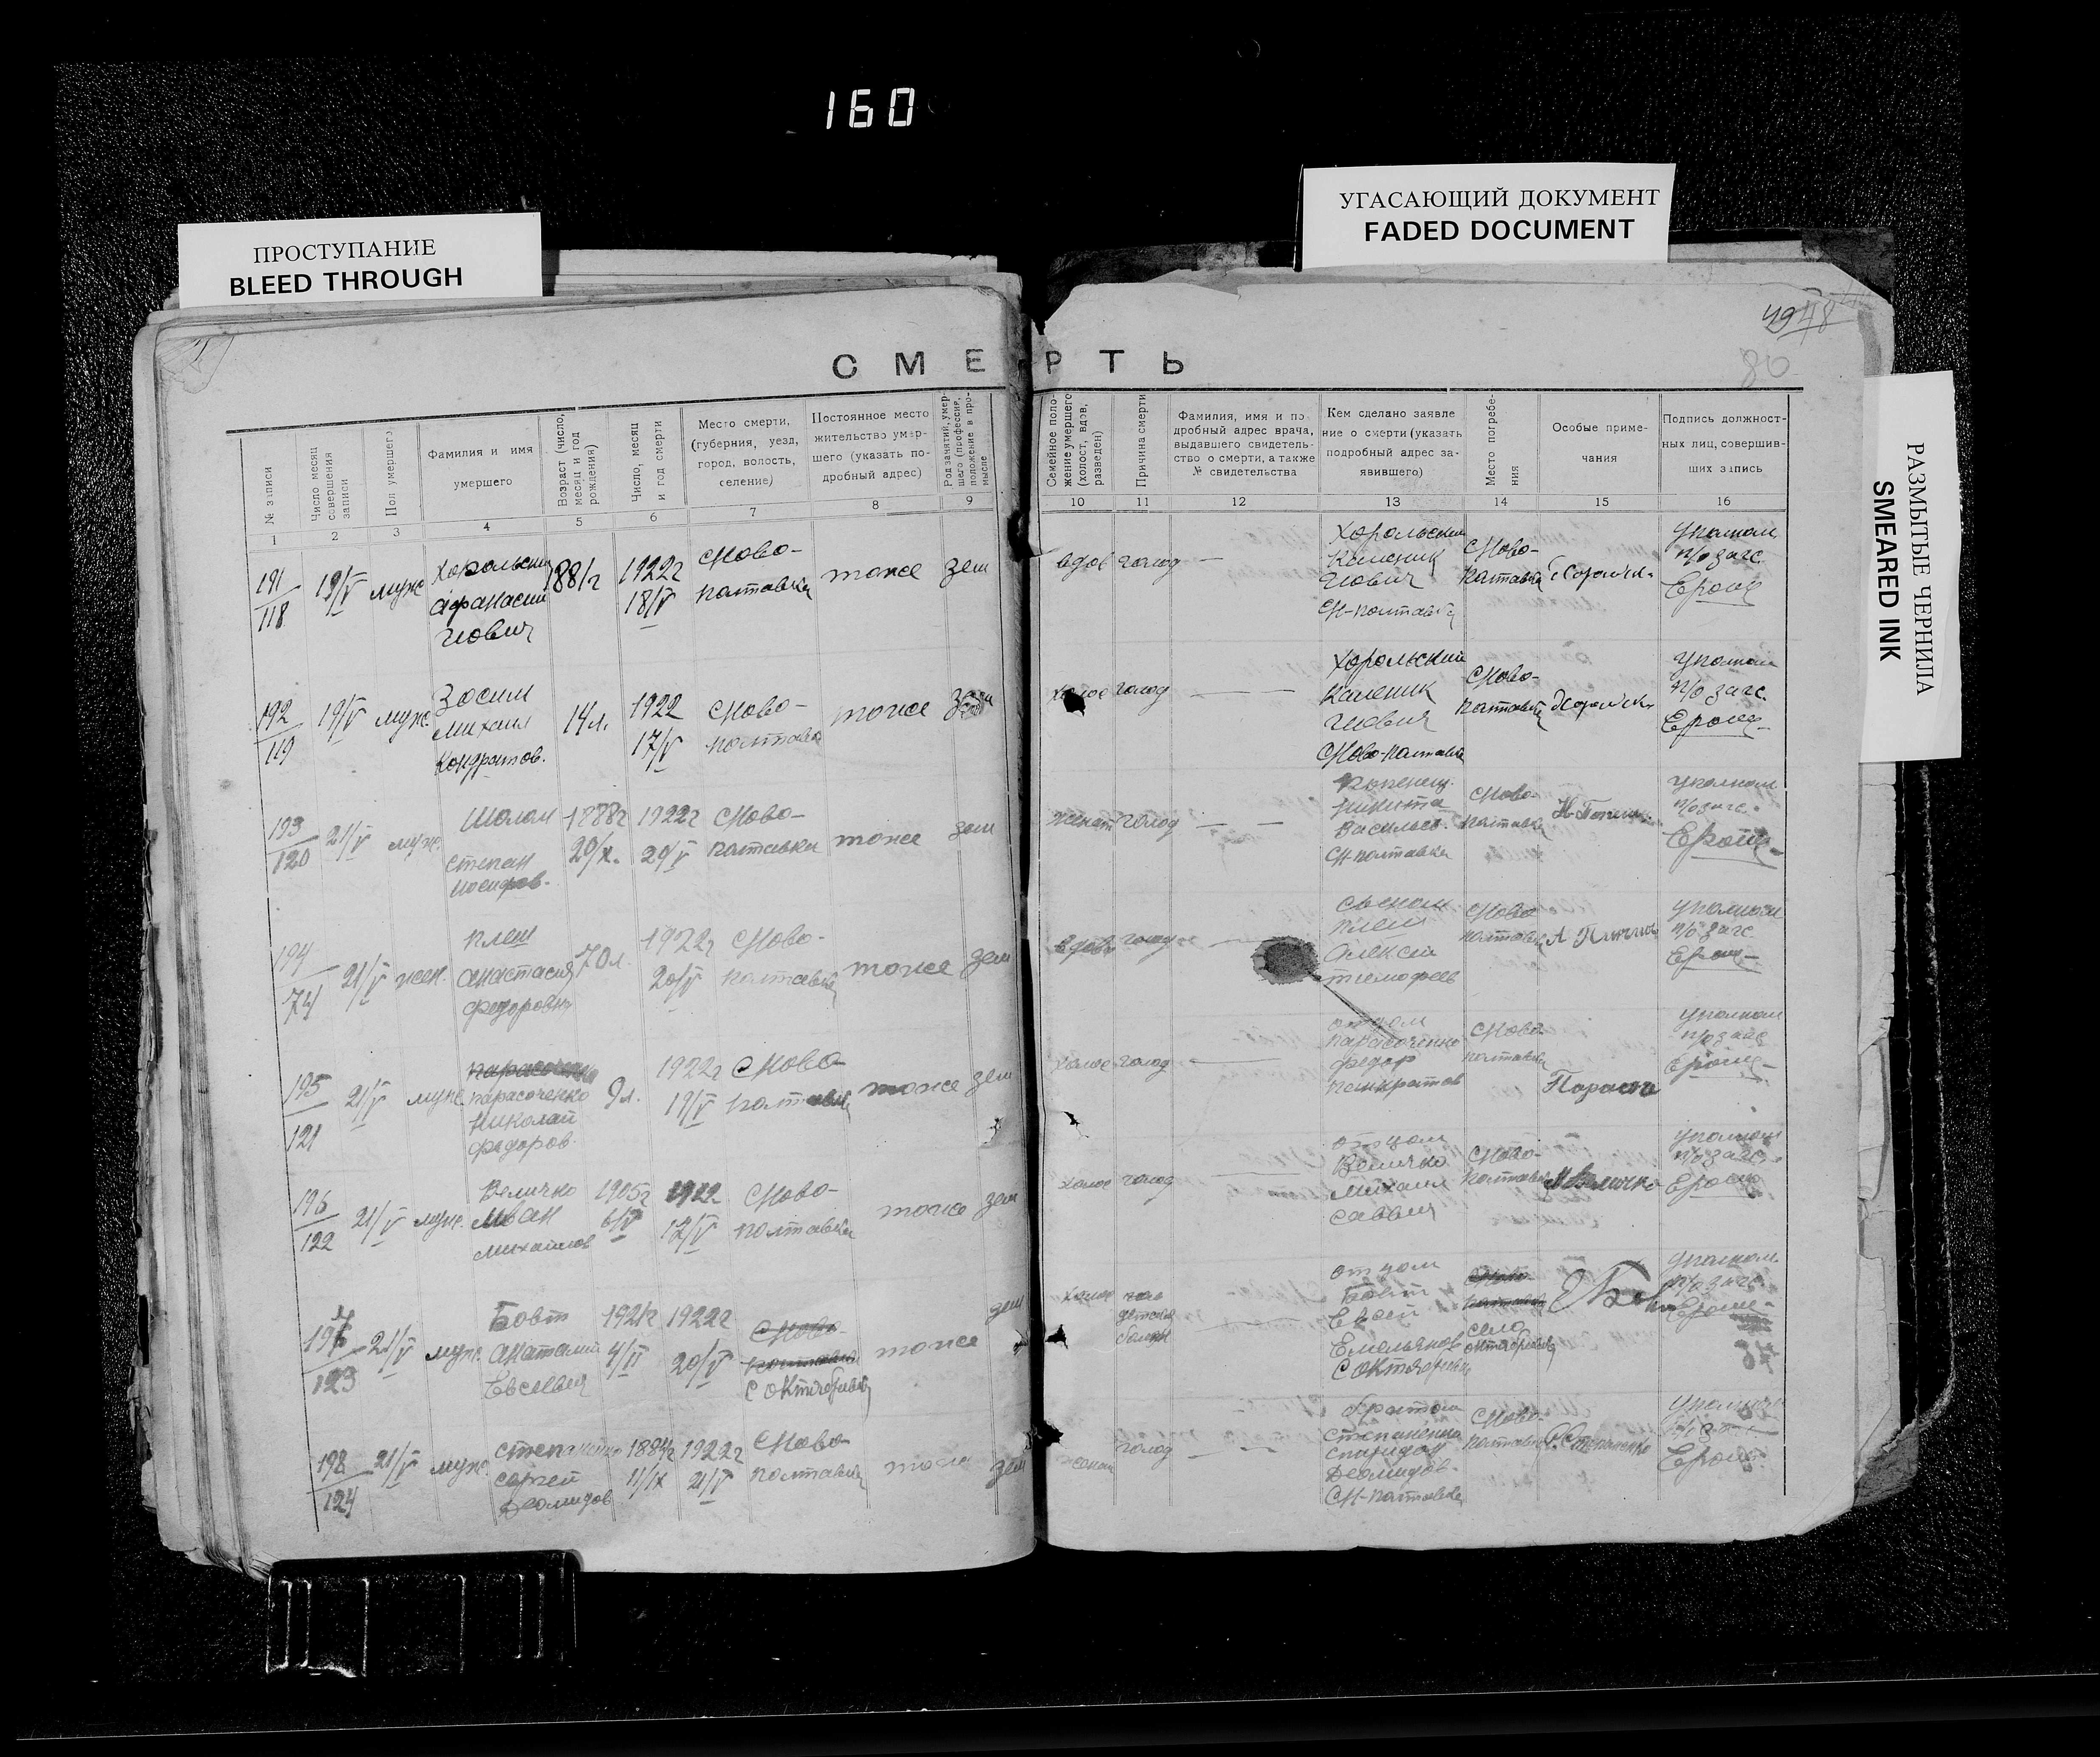 160
УГАСАЮЩИЙ ДОКУМЕНТ
FADED DOCUMENT
ПРОСТУПАНИЕ
BLEED THROUGH
РАЗМЫТЫЕ ЧЕРНИЛА
SMEARED INK
49 48
80
СМЕРТЬ
№ записи
Число месяц совершения записи
Пол умершего
Фамилия и имя
умершего
Возраст (число, месяц и год рождения)
Число, месяц и год смерти
Место смерти,
(губерния, уезд,
город, волость,
селение)
Постоянное место
жительство умер-
шего (указать по-
дробный адрес)
Род занятий, умер-
шего (профессия,
положение в про-
мысле
Семейное поло-
жение умершего
(холост, вдов,
разведен)
Причина смерти
Фамилия, имя и по
дробный адрес врача,
выдавшего свидетель-
ство о смерти, а также
№ свидетельства
Кем сделано заявле
ние о смерти (указать
подробный адрес за-
явившего)
Место погребе-
ния
Особые приме-
чания
Подпись должност-
ных лиц, совершив-
ших запись
1 2 3 4 5 6 7 8 9 10 11 12 13 14 15 16
191
118
19/V
муж
Хорольский
Афанасий
Иович
1881г
1922г
18/V
Ново-
полтавка
тоже
зем
вдов
голод
—
Хорольский
Каленик
Иович
Н-полтавка
Ново-
полтавка
Уполном
п/о загс
192
119
19/V
муж.
Зосим
Михаил
Кондратов.
14л.
1922
17/V
Ново-
полтавка
тоже
холос
голод
— —
Хорольский
Каленик
Иович
Ново-полтавка
Ново-
полтавка
Уполном
п/о загс.
193
120
21/V
муж.
Степан
Иосифов.
1888г
20/X.
1922г
20/V
Ново-
полтавка
тоже
зем
женат
голод
— —
Никита
Васильев.
Н-полтавка
Ново-
полтавка
Уполном
п/о загс.
194
74
21/V
жен.
Плеш
Анастасия
Федоровна
70л.
1922г
20/V
Ново-
полтавка
тоже
зем
вдова
голод
—
сыном
Плеш
Алексей
Тимофеев
Ново
полтавка
Уполном
п/о загс
195
121
21/V
муж.
Парасоченко
Николай
Федоров.
9л.
1922г
19/V
Ново
полтавка
тоже
зем
холос
голод
—
отцом
Парасоченко
Федор
Панкратов
Ново
полтавка
Уполном
п/о загс
196
122
21/V
муж.
Величко
Иван
Михайлов
1905г
6/V
1922
12/V
Ново-
полтавка
тоже
зем
холос
голод
—
отцом
Величко
Михаил
Саввич
Ново-
полтавка
М Величко
Уполном
п/о загс.
197
123
21/V
муж.
Бовт
Анатолий
Евсевич
1921г
4/II
1922г
20/V
Ново-
полтавка
с Октябревка
тоже
зем
холос
детская
отцом
Бовт
Евсей
Емельянов
с Октябревка
Ново-
полтавка
село
Уполном.
п/о загс.
198
124
21/V
муж.
Степаненко
Сергей
Деомидов
1884г
1/IX
1922г
21/V
Ново-
полтавка
тоже
зем
голод
— —
братом
Степаненко
Спиридон
Деомидов.
Н-полтавка
Ново-
полтавка
Степаненко
Уполном